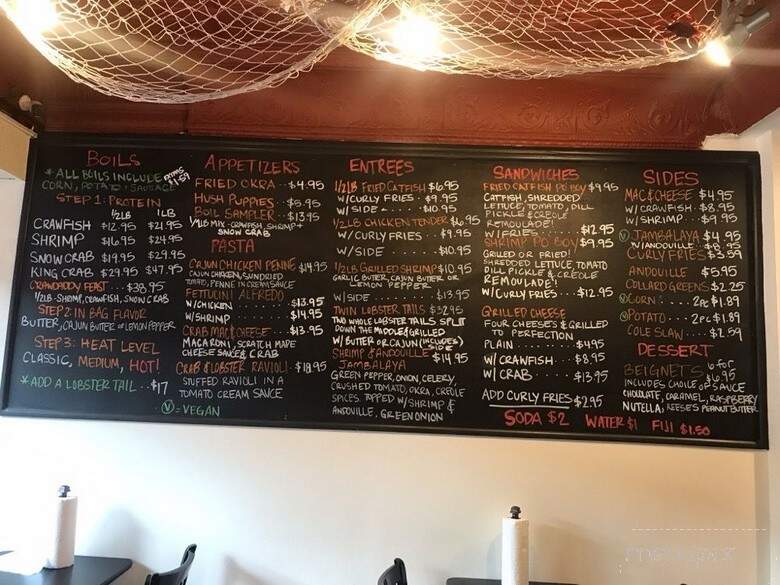 BOILS
* ALL BOILS INCLUDE EXTRAS $1.59
CORN, POTATO + SAUSAGE
STEP 1: PROTEIN
1/2LB 1LB
CRAWFISH $12.95 $21.95
SHRIMP $16.95 $24.95
SNOW CRAB $19.95 $29.95
KING CRAB $29.95 $47.95
CRAWDADDY FEAST .... $38.95
1/2LB - SHRIMP, CRAWFISH, SNOW CRAB
STEP 2: IN BAG FLAVOR
BUTTER, CAJUN BUTTER OR LEMON PEPPER
STEP 3: HEAT LEVEL
CLASSIC, MEDIUM, HOT!
* ADD A LOBSTER TAIL ... $17
APPETIZERS
FRIED OKRA .. $4.95
HUSH PUPPIES .. $5.95
BOIL SAMPLER .. $13.95
1/4LB MIX - CRAWFISH, SHRIMP +
SNOW CRAB
PASTA
CAJUN CHICKEN PENNE $14.95
CAJUN CHICKEN, SUNDRIED
TOMATO, PENNE IN CREAM SAUCE
FETTUCINI ALFREDO
W/CHICKEN .... $13.95
W/SHRIMP .... $14.95
CRAB MAC & CHEESE .. $13.95
MACARONI, SCRATCH MADE
CHEESE SAUCE & CRAB
CRAB & LOBSTER RAVIOLI .. $18.95
STUFFED RAVIOLI IN A
TOMATO CREAM SAUCE
V = VEGAN
ENTREES
1/2LB FRIED CATFISH $6.95
W/CURLY FRIES .. $9.95
W/SIDE .... $10.95
1/2LB CHICKEN TENDER $6.95
W/CURLY FRIES .. $9.95
W/SIDE .... $10.95
1/2LB GRILLED SHRIMP $10.95
GARLIC BUTTER, CAJUN BUTTER OR
LEMON PEPPER
W/SIDE ..... $13.95
TWIN LOBSTER TAILS $32.95
TWO WHOLE LOBSTER TAILS SPLIT
DOWN THE MIDDLE & GRILLED
W/ BUTTER OR CAJUN (INCLUDES SIDE)
SHRIMP & ANDOUILLE $14.95
JAMBALAYA
GREEN PEPPER, ONION, CELERY,
CRUSHED TOMATO, OKRA, CREOLE
SPICES. TOPPED W/SHRIMP &
ANDOUILLE, GREEN ONION
SANDWICHES
FRIED CATFISH PO BOY $9.95
CATFISH, SHREDDED
LETTUCE, TOMATO, DILL
PICKLE & CREOLE
REMOULADE!
W/FRIES .... $12.95
SHRIMP PO BOY $9.95
GRILLED OR FRIED!
SHREDDED LETTUCE, TOMATO
DILL PICKLE & CREOLE
REMOULADE!
W/CURLY FRIES ... $12.95
GRILLED CHEESE
FOUR CHEESES & GRILLED
TO PERFECTION
PLAIN ...... $4.95
W/CRAWFISH .... $8.95
W/CRAB ...... $13.95
ADD CURLY FRIES $2.95
SIDES
MAC & CHEESE $4.95
W/CRAWFISH .. $8.95
W/SHRIMP ... $9.95
V JAMBALAYA $4.95
W/ANDOUILLE .. $8.95
CURLY FRIES $3.59
ANDOUILLE $5.95
COLLARD GREENS $2.25
V CORN .... 2pc $1.89
V POTATO .... 2pc $1.89
COLE SLAW .... $2.59
DESSERT
BEIGNETS 6 for $6.95
INCLUDES CHOICE OF SAUCE
CHOCOLATE, CARAMEL, RASPBERRY
NUTELLA, REESE'S PEANUT BUTTER
SODA $2 WATER $1 FIJI $1.50